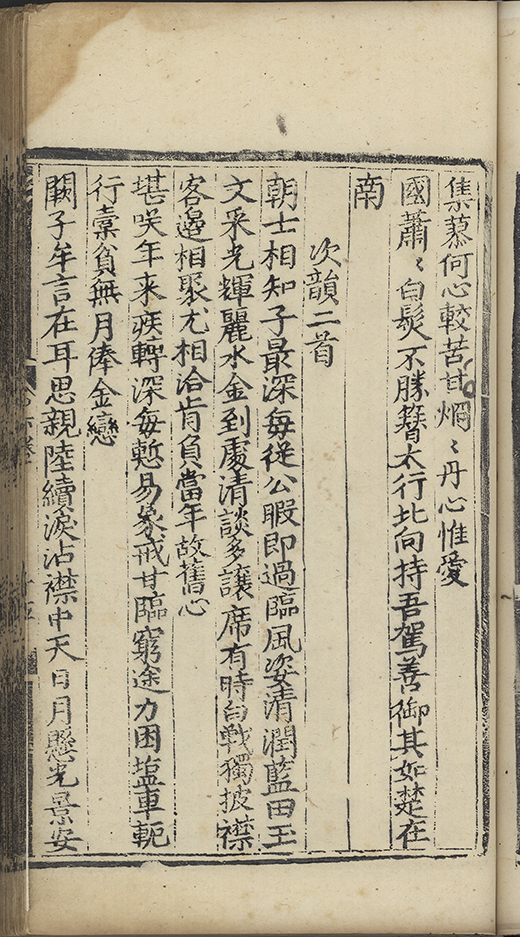 集蓼何心較苦甘炯〻丹心惟愛
國蕭〻白髮不勝簪太行北向持吾駕善御其如楚在
南
次韻二首
朝士相知子最深每從公暇即過臨風姿清潤藍田玉
文采光輝麗水金到處清談多讓席有時白戰獨披襟
客邊相聚尤相洽肯負當年故舊心
堪咲年来疾轉深每慙易象戒甘臨窮途力困塩車軛
行橐貧無月俸金戀
闕子牟言在耳思親陸續淚沾襟中天日月懸光景安